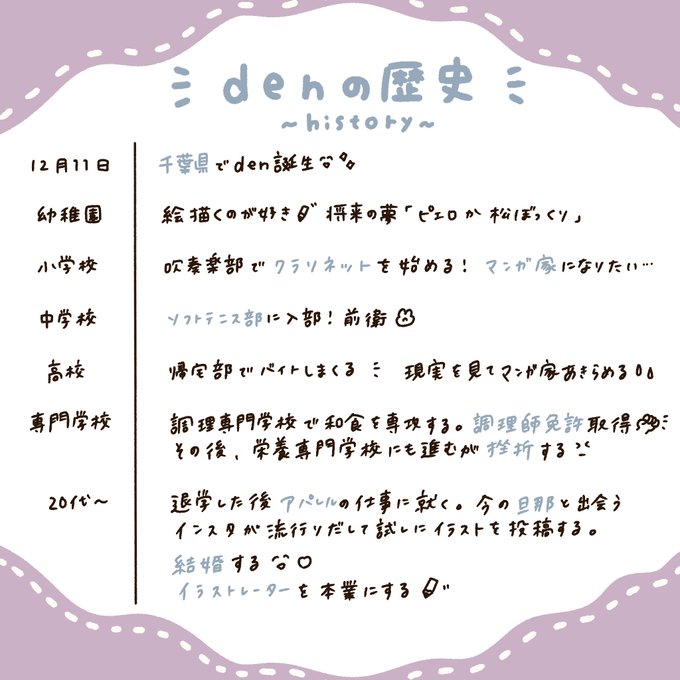 denの歴史
~history~
12月11日 千葉県でden誕生
幼稚園 絵描くのが好き 将来の夢「ピエロか松ぼっくり」
小学校 吹奏楽部でクラリネットを始める! マンガ家になりたい…
中学校 ソフトテニス部に入部!前衛
高校 帰宅部でバイトしまくる 現実を見てマンガ家あきらめる
専門学校 調理専門学校で和食を専攻する。調理師免許取得
その後、栄養専門学校にも進むが挫折する
20代~ 退学した後アパレルの仕事に就く。今の旦那と出会う
インスタが流行りだして試しにイラストを投稿する。
結婚する
イラストレーターを本業にする